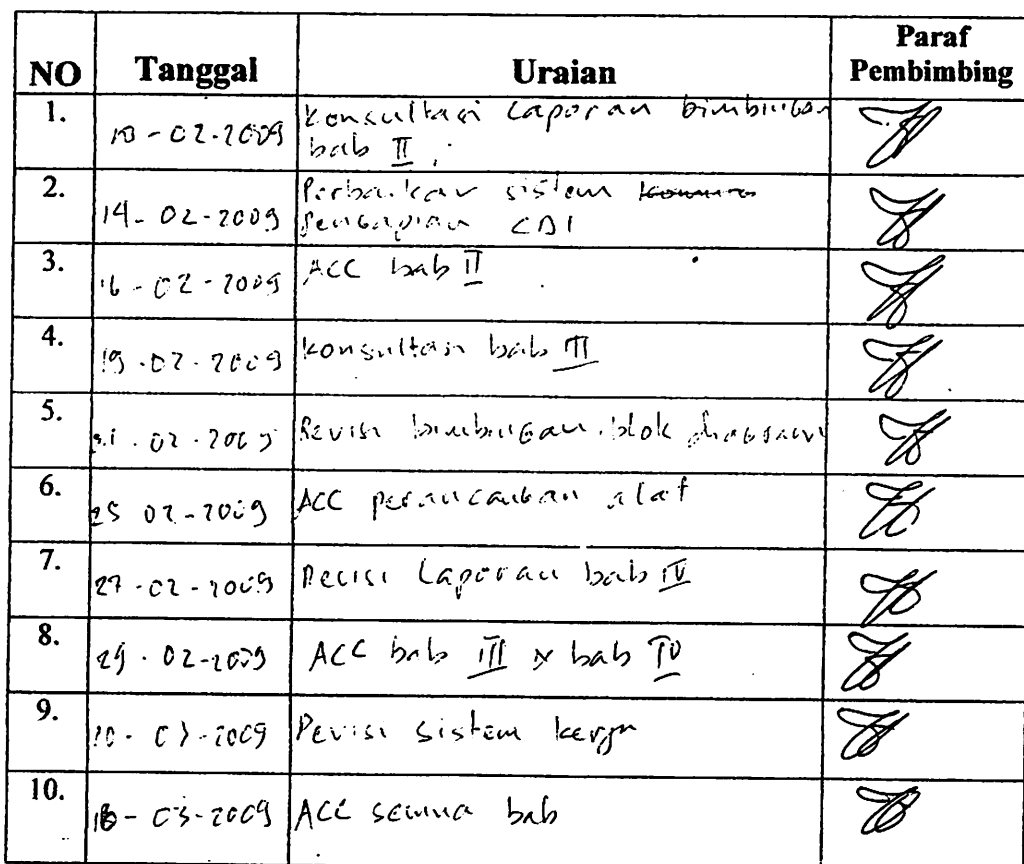 NO Tanggal Uraian Paraf Pembimbing
1. 10-02-2009 Konsultasi Laporan bimbingan
bab II
2. 14-02-2009 Perbaikan sistem
Pengapian CDI
3. 16-02-2009 ACC bab II
4. 19-02-2009 Konsultasi bab III
5. 02-2009 Revisi bimbingan blok diagram
6. 25 02-2009 ACC perancangan alat
7. 27-02-2009 Revisi Laporan bab IV
8. 29-02-2009 ACC bab III & bab IV
9. 10-03-2009 Revisi sistem kerja
10. 18-03-2009 ACC semua bab